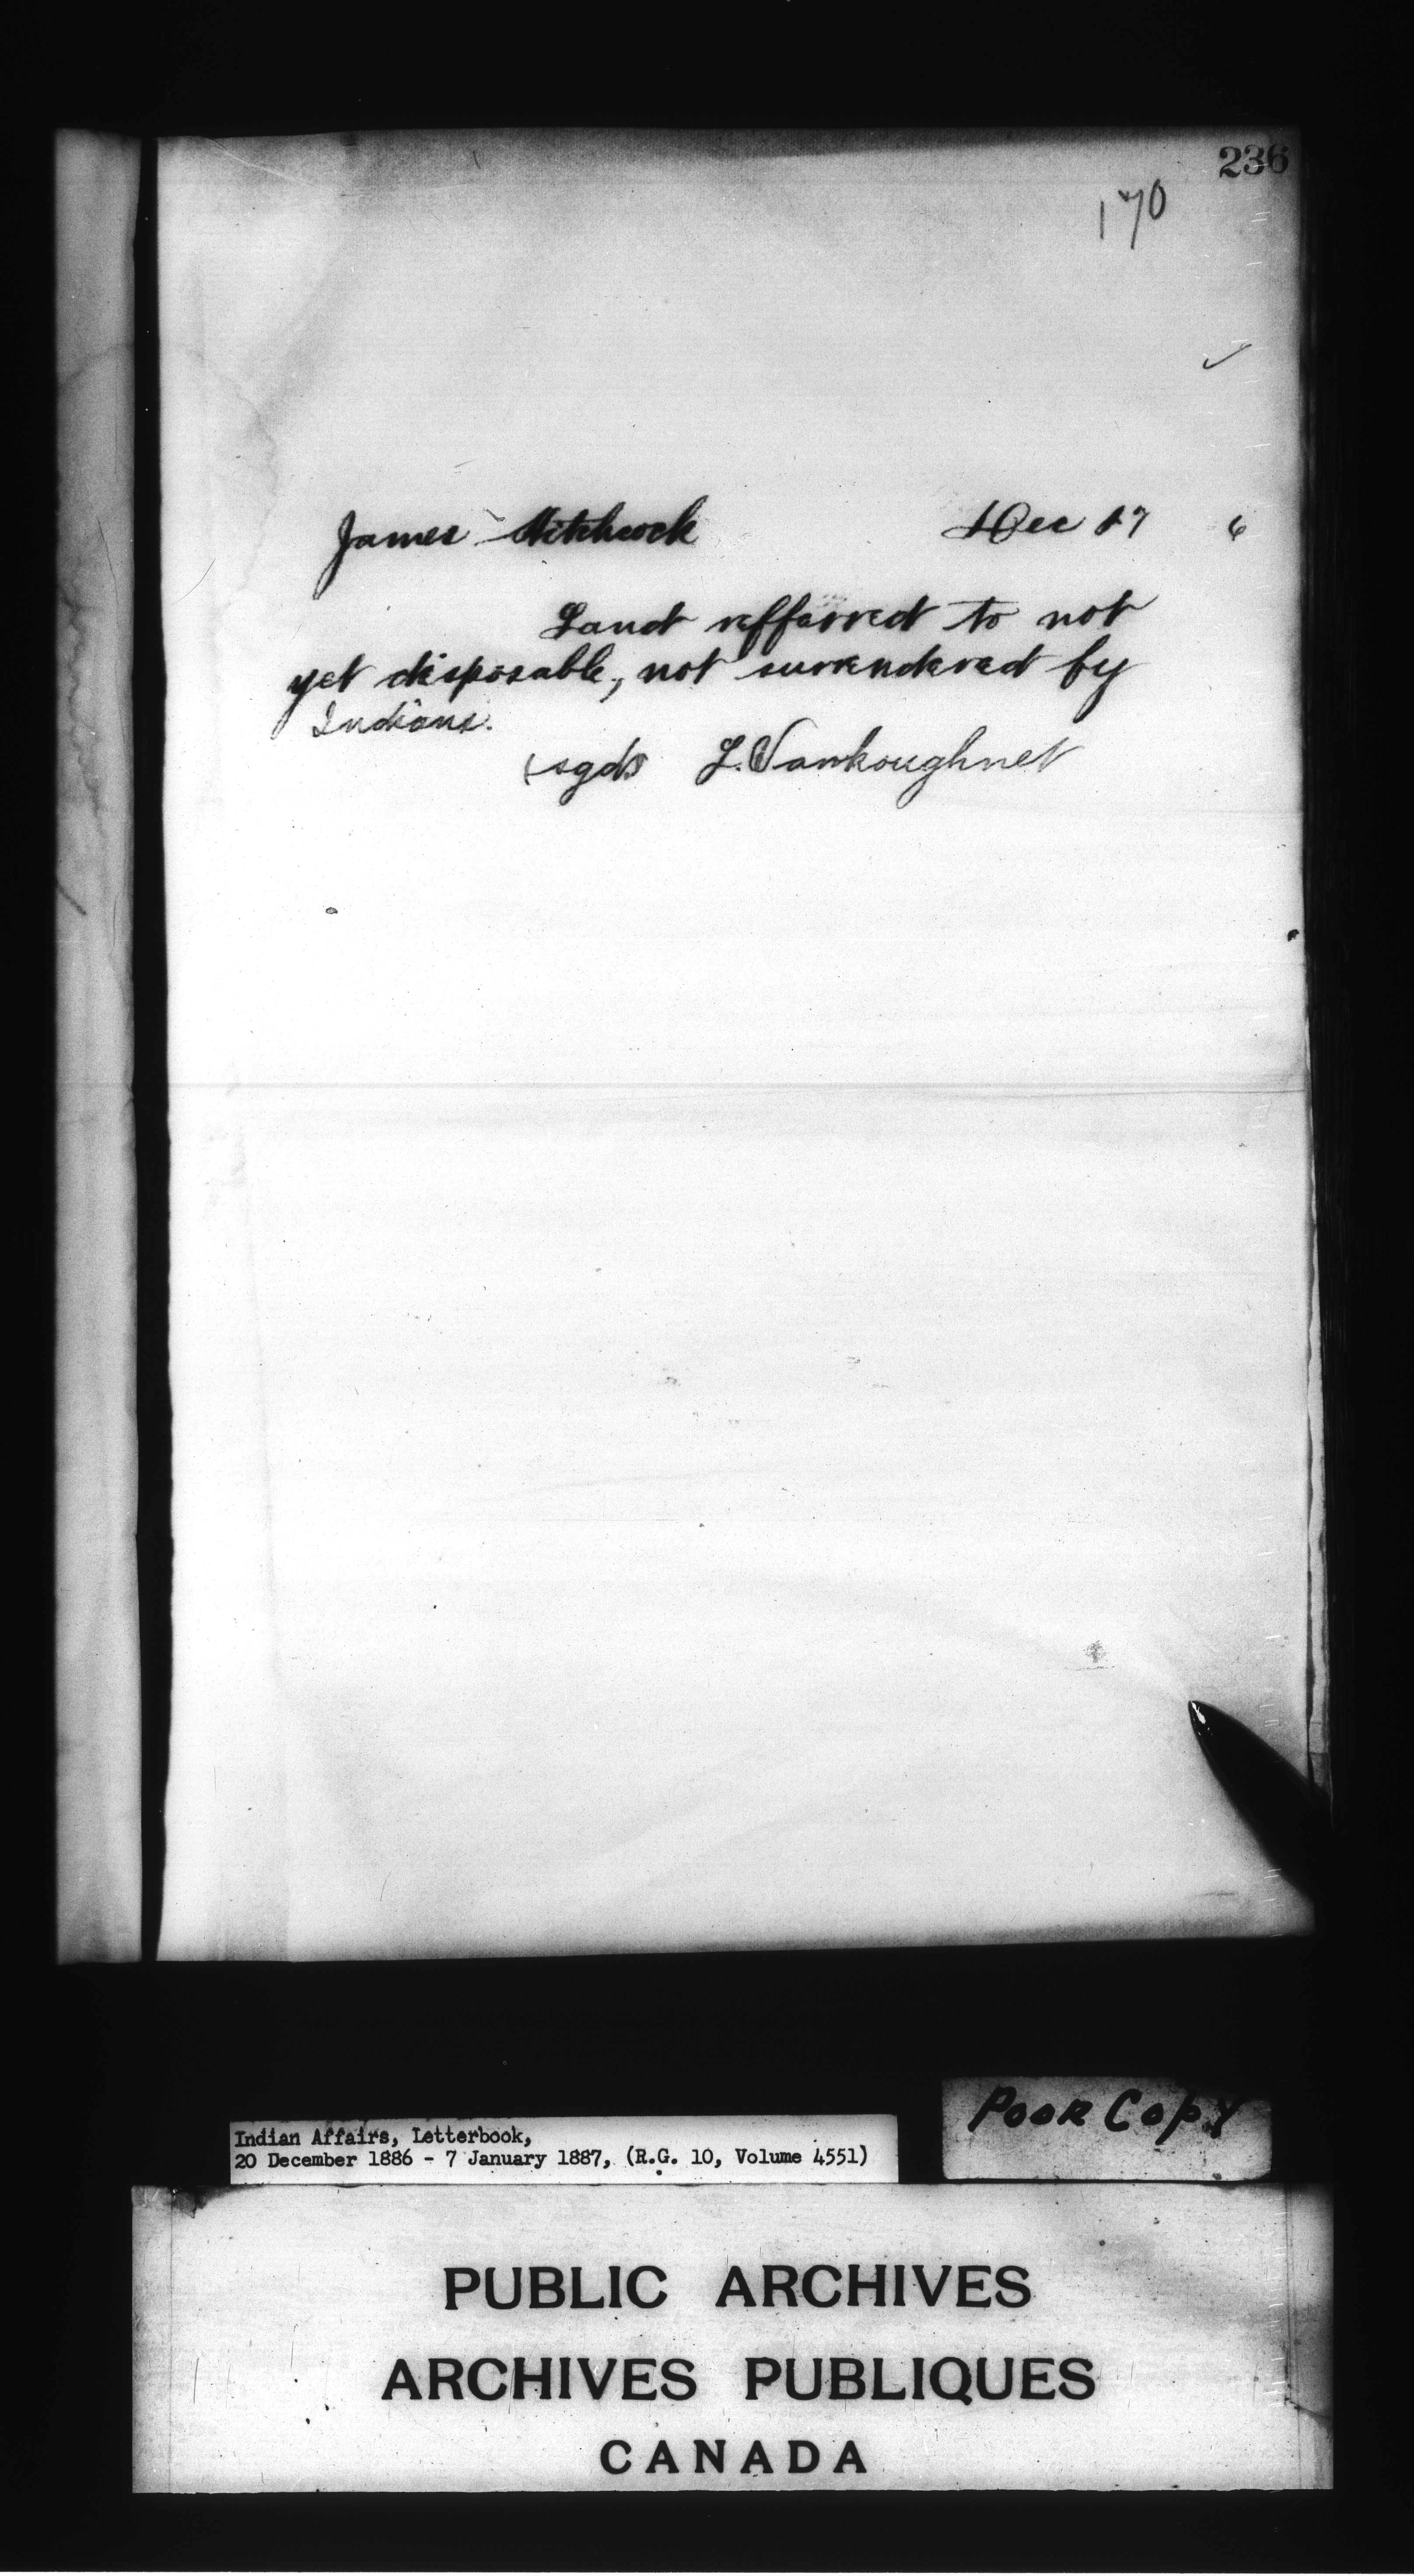 236
170
James Hitchcock Dec 27 6
Land reffarred to not
yet disposable, not surrendered by
Indians.
(sgd) L. Vankoughnet
Poor Copy
Indian Affairs, Letterbook,
20 December 1886 - 7 January 1887, (R.G. 10, Volume 4551)
PUBLIC ARCHIVES
ARCHIVES PUBLIQUES
CANADA